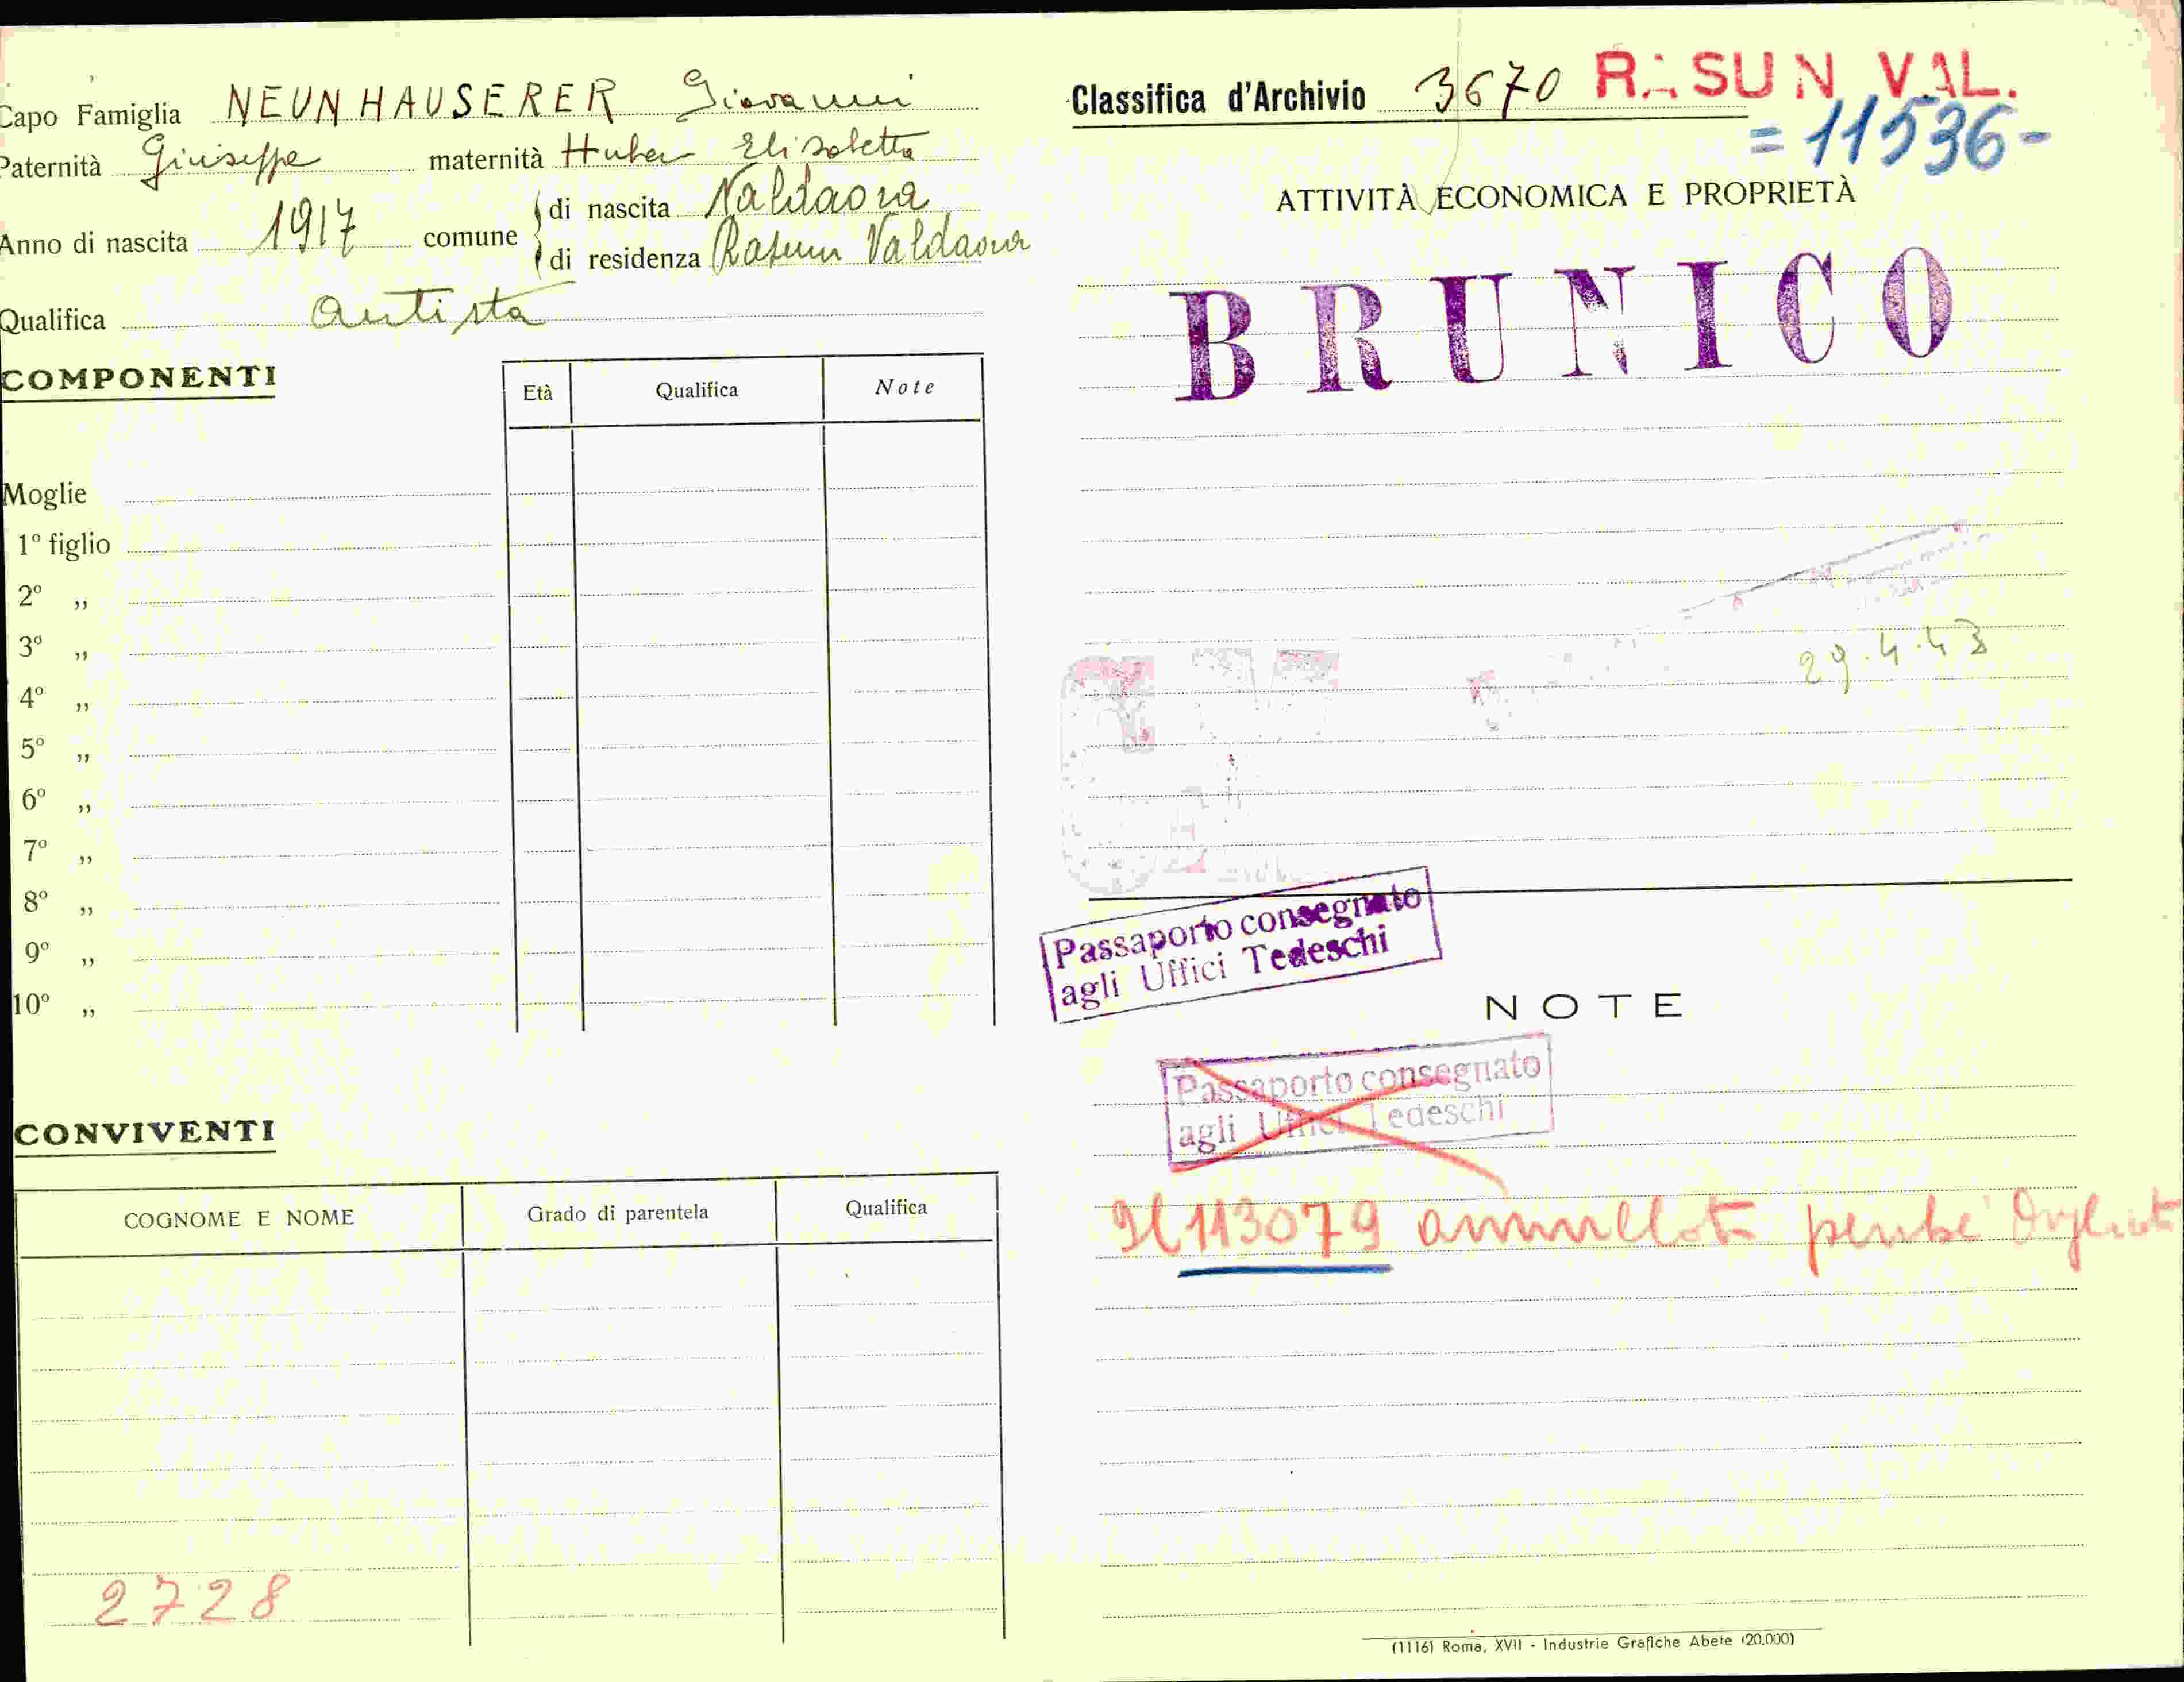 Capo Famiglia NEUNHAUSERER Giovanni
Paternità Giuseppe maternità Huber Elisabetta
Anno di nascita 1917 comune di nascita Valdaora
di residenza Rasun Valdaora
Qualifica Autista
COMPONENTI
Età Qualifica Note
Moglie
1º figlio
2º ,,
3º ,,
4º ,,
5º ,,
6º ,,
7º ,,
8º ,,
9º ,,
10º ,,
CONVIVENTI
COGNOME E NOME Grado di parentela Qualifica
2728
Classifica d'Archivio 3670 RASUN VAL.
= 11536-
ATTIVITÀ ECONOMICA E PROPRIETÀ
BRUNICO
29.4.43
Passaporto consegnato
agli Uffici Tedeschi
NOTE
Passaporto consegnato
agli Uffici Tedeschi
Il 113079 annullato perché
(1116) Roma, XVII - Industrie Grafiche Abete (20.000)